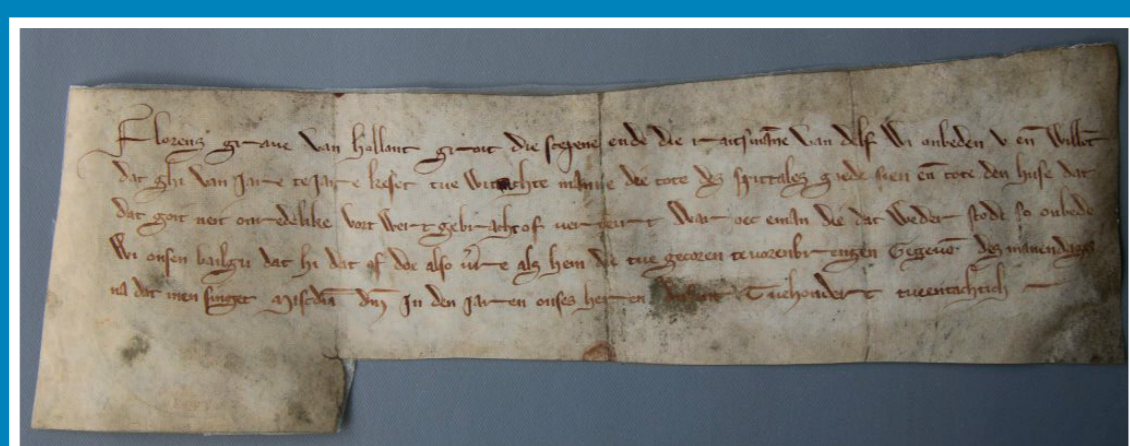 Florens graue van Hollant groit die scepene ende die raitsmanne van delf Wi onbeden v en̄ willen̄
dat ghi van Jare te Jare keset tue withachte manne die tote des spittales goede sien en̄ tote den huse dat
dat goit neit onredelike voit wert gebracht of uerteirt War oec eman die dat weder stode so onbede
Wi onsen bailgu dat hi dat of doe also v̄re als hem die tue gecoren te uorenbrengen Gegeuē des manendages
na dat men singet Misd̄ia dn̄i Jn den Jaren onses heren Tuehondert tueentachtich